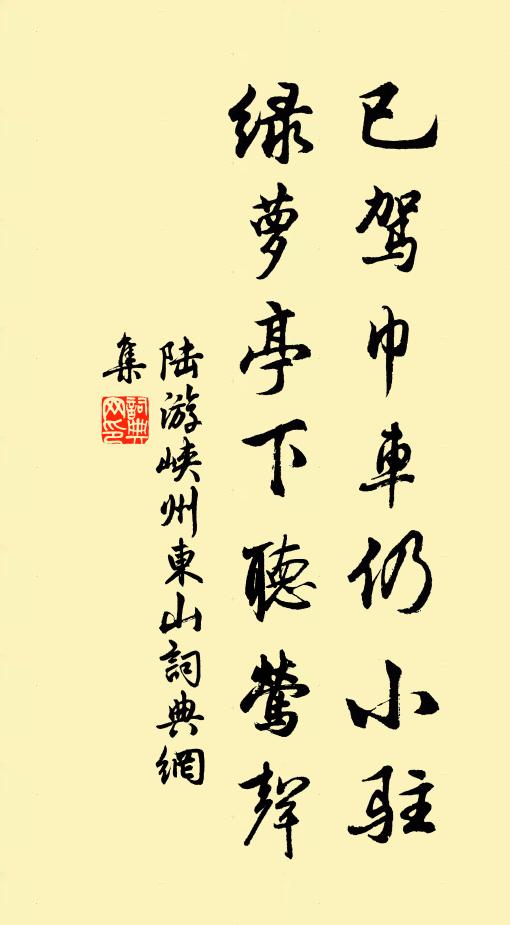 已駕巾車仍小駐
緑萝亭下聽鶯聲
陸游峽州東山詞典網
集
詞典网印